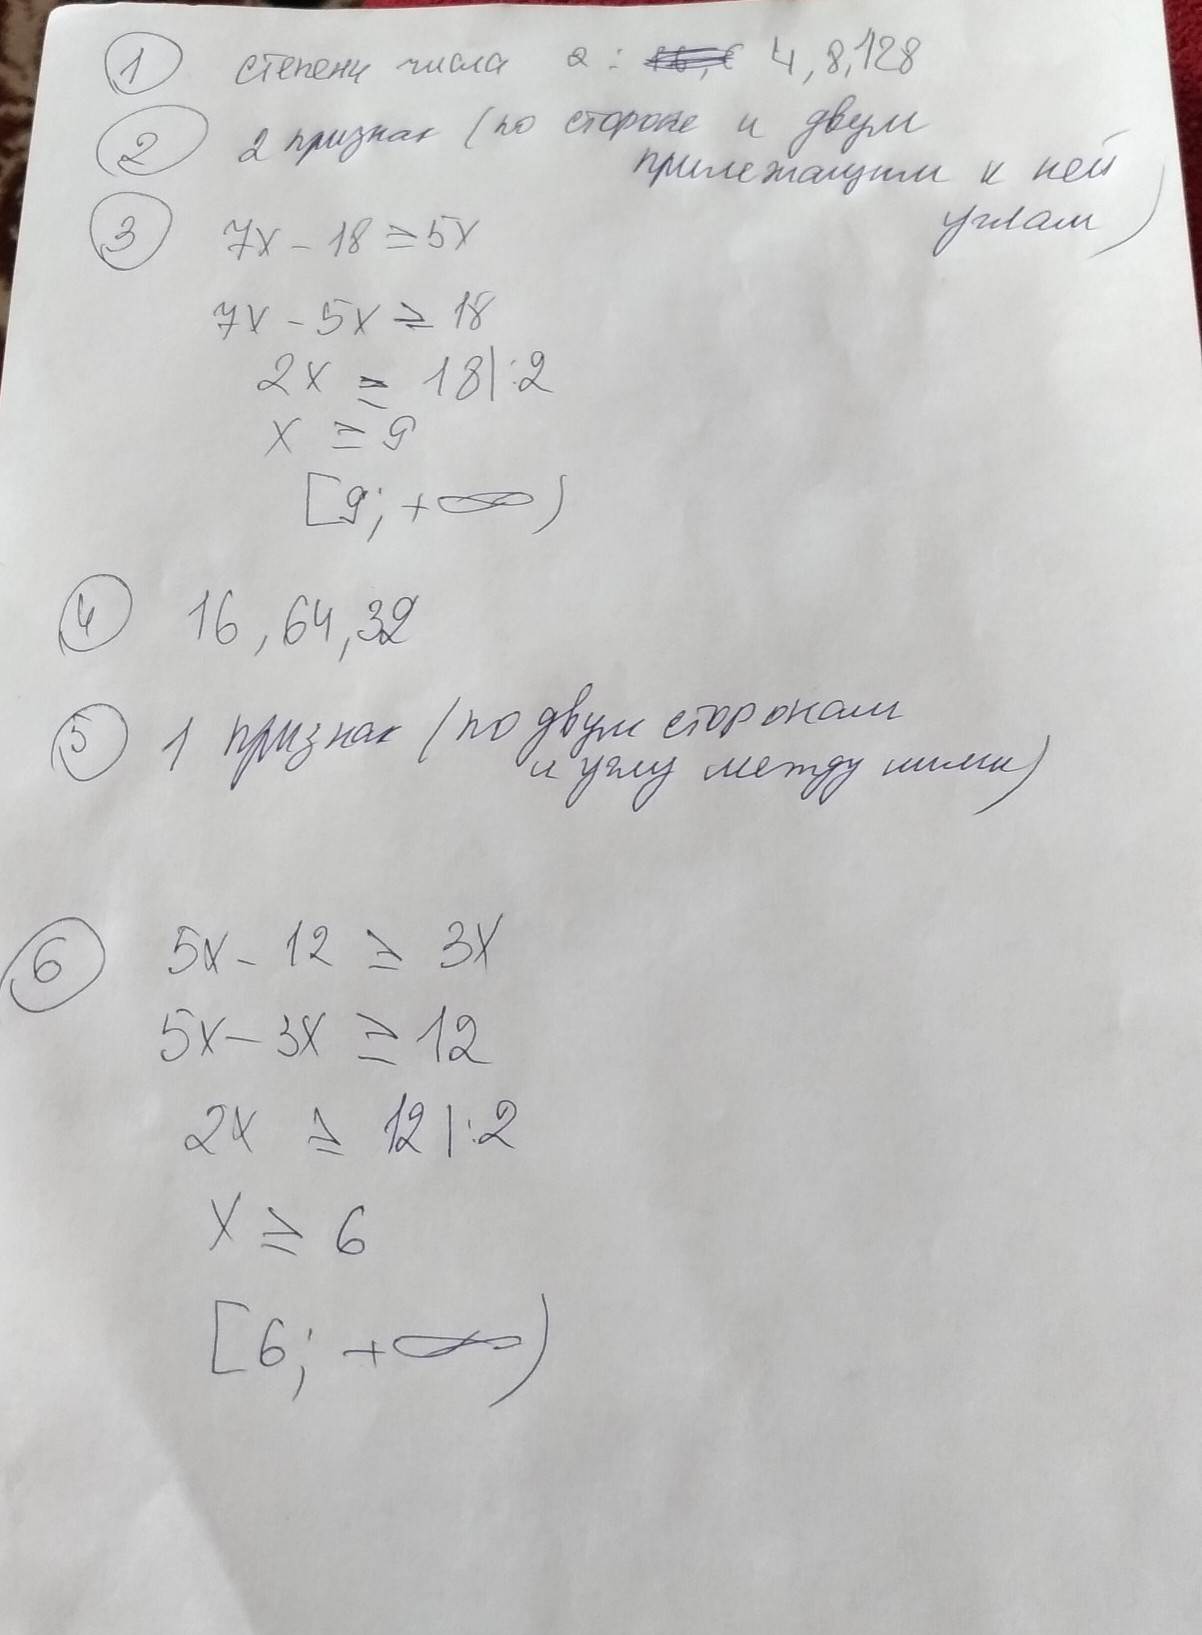 1 степени числа 2: 4, 8, 128
2 2 признак (по стороне и двум
прилежащим к ней
углам)
3 7x - 18 ≥ 5x
7x - 5x ≥ 18
2x ≥ 18 |:2
x ≥ 9
[9; +∞)
4 16, 64, 32
5 1 признак (по двум сторонам
и углу между ними)
6 5x - 12 ≥ 3x
5x - 3x ≥ 12
2x ≥ 12 |:2
x ≥ 6
[6; +∞)